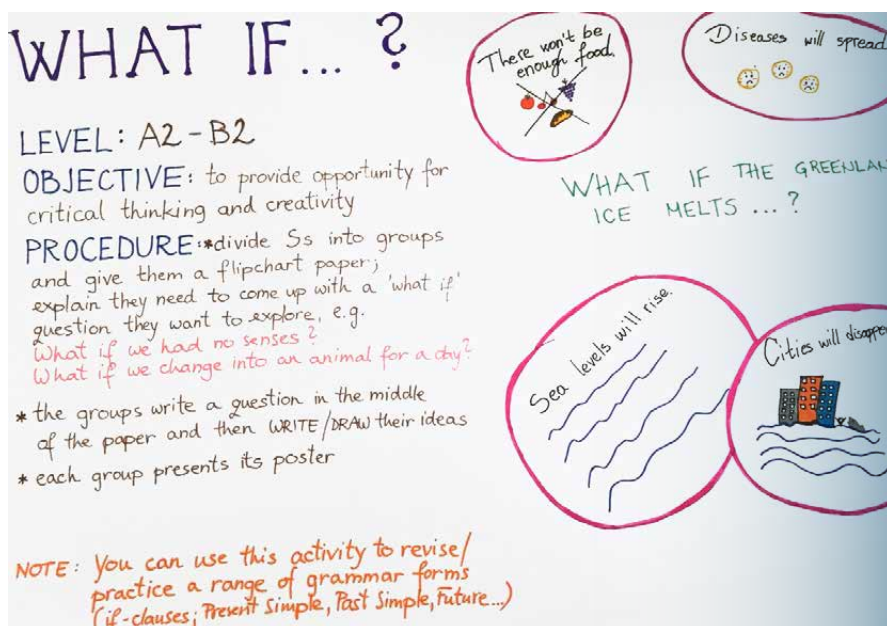 WHAT IF... ?
LEVEL: A2-B2
OBJECTIVE: to provide opportunity for
critical thinking and creativity
PROCEDURE: *divide Ss into groups
and give them a flipchart paper;
explain they need to come up with a 'what if'
question they want to explore, e.g.
What if we had no senses?
What if we change into an animal for a day?
* the groups write a question in the middle
of the paper and then WRITE/DRAW their ideas
* each group presents its poster
NOTE: You can use this activity to revise/
practice a range of grammar forms
(if-clauses; Present Simple, Past Simple, Future...)
There won't be
enough food.
Diseases will spread
WHAT IF THE GREENLAN
ICE MELTS ...?
Sea levels will rise.
Cities will disappe